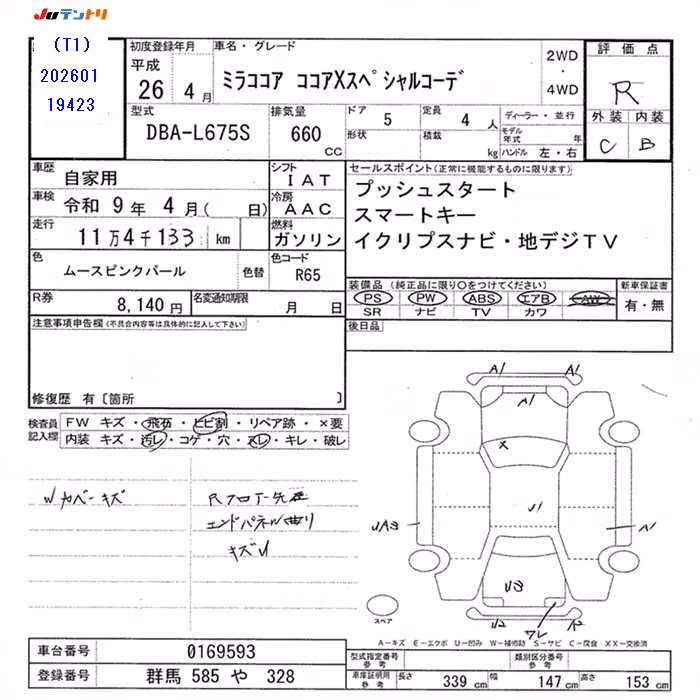 JUテントリ
(T1)
202601
19423
初度登録年月
平成
26 4月
車名・グレード
ミラココア ココアXスペシャルコーデ
2WD
・
4WD
評価点
R
外装 内装
C B
型式
DBA-L675S
排気量
660 CC
ドア 5
形状
定員 4 人
積載 kg
ディーラー・並行
モデル年式 年
ハンドル 左・右
車歴
自家用
シフト
IAT
車検
令和 9年 4月( 日)
冷房
AAC
走行
11万4千133 km
燃料
ガソリン
色
ムースピンクパール
色替
色コード
R65
R券
8,140円
名変通知期限
月 日
セールスポイント(正常に機能するものに限ります)
プッシュスタート
スマートキー
イクリプスナビ・地デジTV
装備品(純正品に限り○をつけてください)
PS PW ABS エアB AW
SR ナビ TV カワ
新車保証書
有・無
後日品
注意事項申告欄(不具合内容等は具体的に記入して下さい)
修復歴 有〔箇所 〕
検査員記入欄
FW キズ・飛石・ヒビ割・リペア跡・×要
内装 キズ・汚レ・コゲ・穴・スレ・キレ・破レ
Wカバーキズ
エンドパネル曲り
キズU
A1
A1
A1
X
U1
A1
UA3
U3
U2
ワレ
スペア
A−キズ E−エクボ U−凹み W−補修跡 S−サビ C−腐食 XX−交換済
車台番号
0169593
登録番号
群馬 585 や 328
型式指定番号
参考
類別区分番号
参考
車庫証明用
参考
長さ 339 cm
幅 147 cm
高さ 153 cm